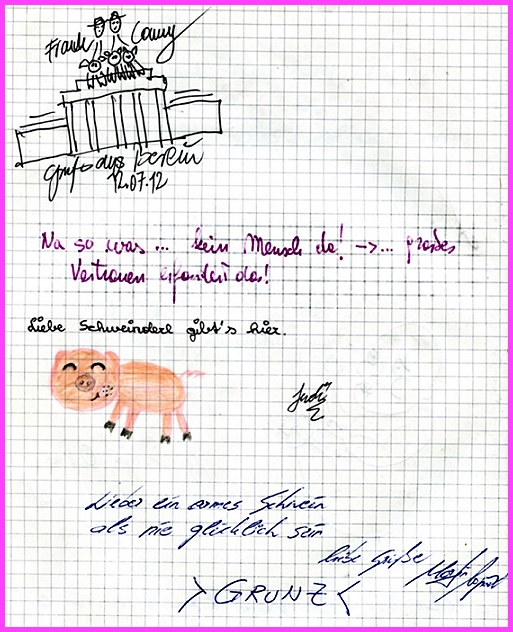 Frank Conny
Grüße aus Berlin
12.07.12
Na so was ... kein Mensch da! -> ... großes
Vertrauen erfordert das!
Liebe Schweinderl gibt's hier.
Judy
Lieber ein armes Schwein
als nie glücklich sein
liebe Grüße
> GRUNZ <